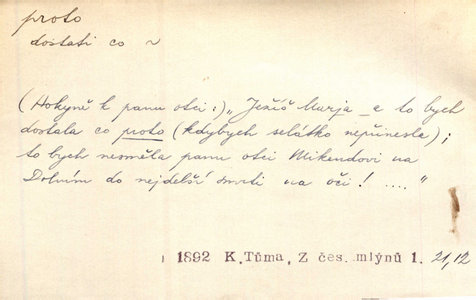 proto
dostati co ~
(Hokyně k panu otci:) „Ježíš Marja – e to bych
dostala co proto (kdybych selátko nepřinesla);
to bych nesměla panu otci Mikendovi na
Dolním do nejdelší smrti na oči! ....“
1892 K. Tůma, Z čes. mlýnů 1. 21,12